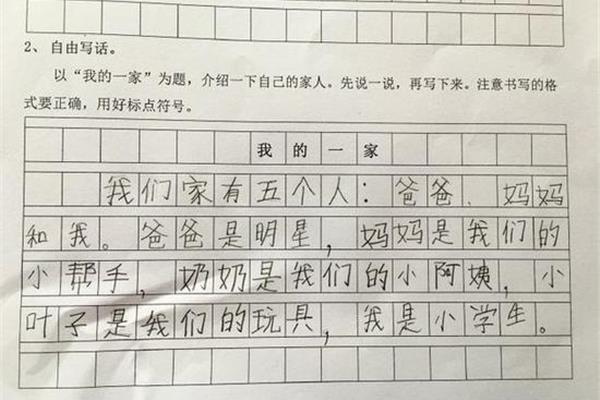 2、自由写话。
以“我的一家”为题，介绍一下自己的家人。先说一说，再写下来。注意书写的格
式要正确，用好标点符号。
我的一家
我们家有五个人：爸爸、妈妈
和我。爸爸是明星，妈妈是我们的
小帮手，奶奶是我们的小阿姨，小
叶子是我们的玩具，我是小学生。